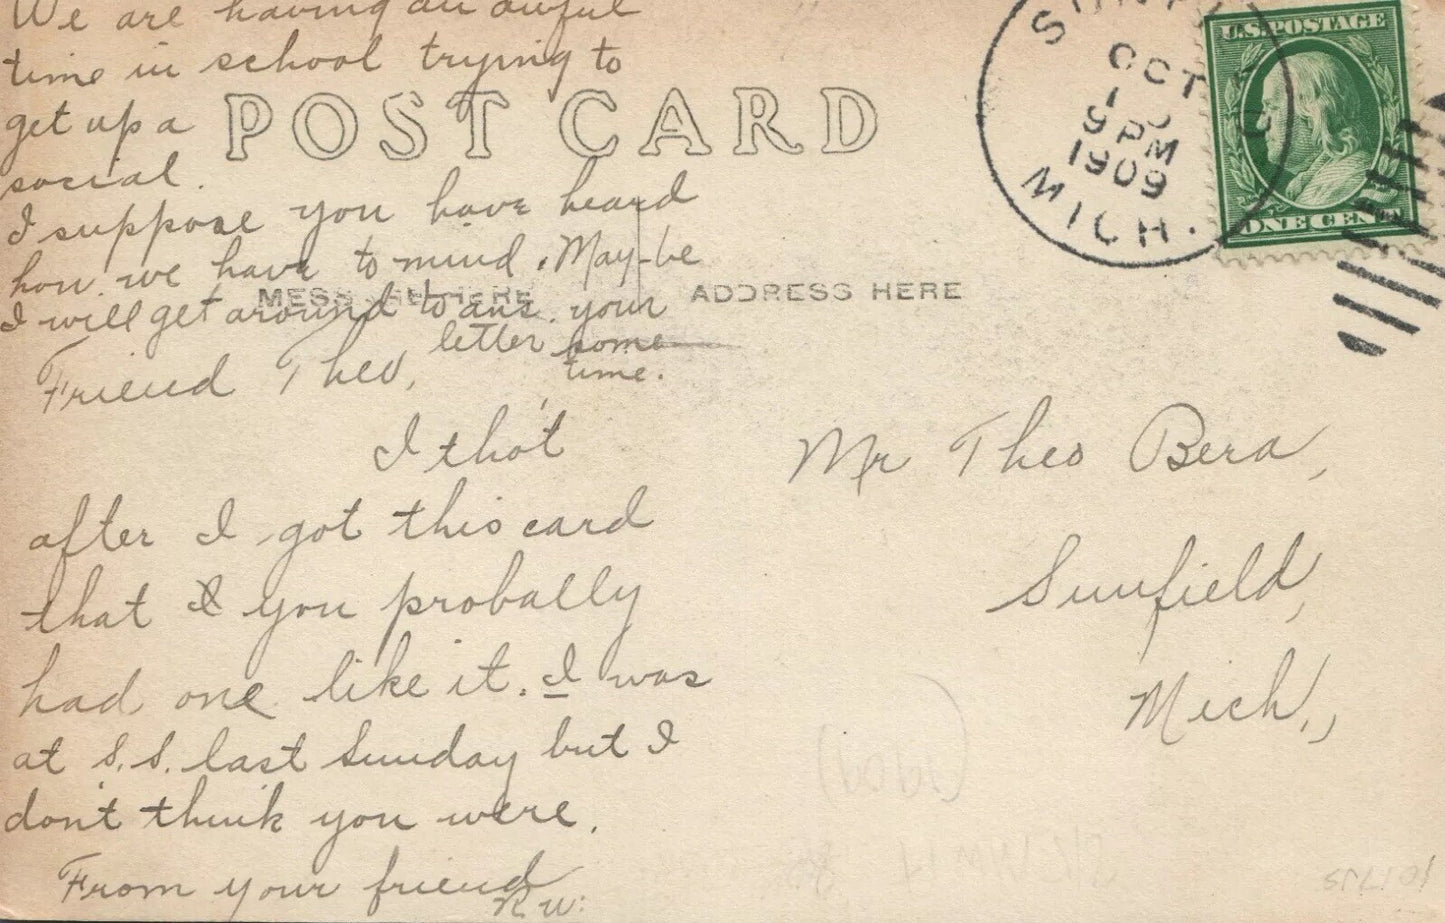 We are having an awful
time in school trying to
get up a
social.
I suppose you have heard
how we have to mind. May-be
I will get around to ans. your
letter some
time.
Friend Theo,
I tho't
after I got this card
that I you probally
had one like it. I was
at S.S. last Sunday but I
don't think you were.
From your friend
R W.
POST CARD
MESSAGE HERE
ADDRESS HERE
OCT
9 PM
1909
MICH.
U.S. POSTAGE
ONE CENT
Mr Theo Bera,
Sunfield,
Mich.,
(1909)